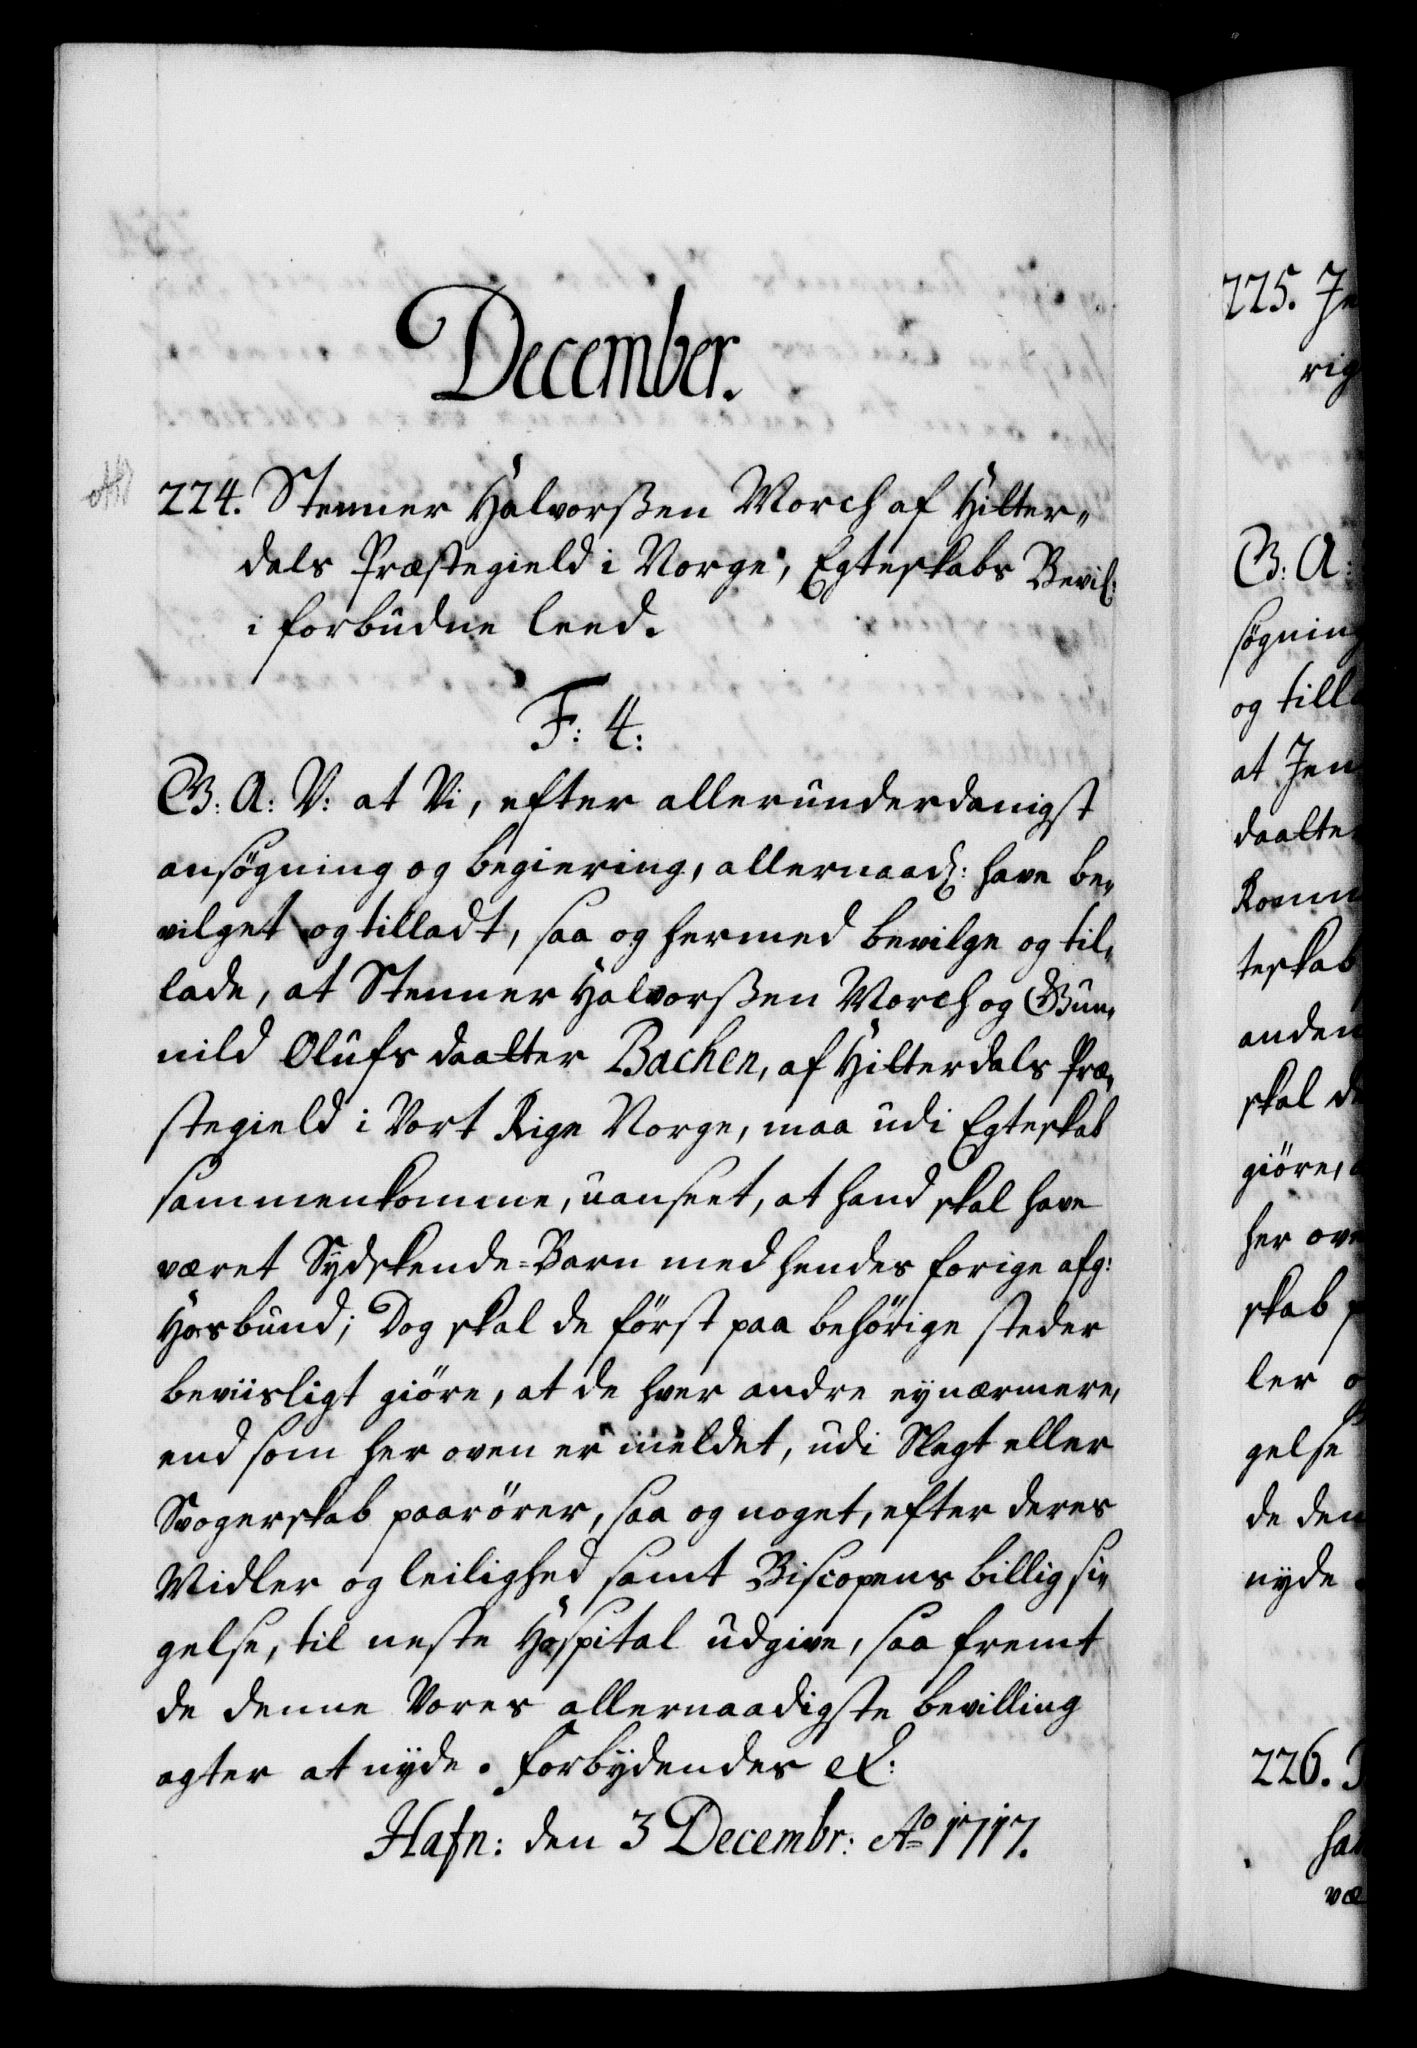 December.
224. Stenner Halvorßen Morch af Hilter-
dals Præstegield i Norge, Egteskabs Bevil:
i forbudne leed.
F: 4:
G: A: V: at Vi, efter allerunderdanigst
ansøgning og begiering, allernaad: have be-
vilget og tilladt, saa og hermed bevilge og til-
lade, at Stenner Halvorßen Morch og Gun-
nild Olufs daatter Bachen, af Hilterdals Præ-
stegield i Vort Rige Norge, maa udi Egteskab
sammenkomme, uanseet, at hand skal have
været Sydskende-Barn med hendes forige afg:
Hosbund; Dog skal de först paa behörige steder
beviisligt giöre, at de hver andre ey nærmere,
end som her oven er meldet, udi Slegt eller
Svogerskab paarörer, saa og noget, efter deres
Midler og leilighed samt Biscopens billig sie
gelse, til neste Hospital udgive, saa fremt
de denne Vores allernaadigste bevilling
agter at nyde. Forbydendes etc:
Hafn: den 3 Decembr: Ao 1717.
225. Je
rig
G: A:
søgning
og till
at Jen
daatter
Romm
teskab
anden
skal d
giöre,
her ove
skab
ler o
gelse
de den
nyde
226.
ha
væ